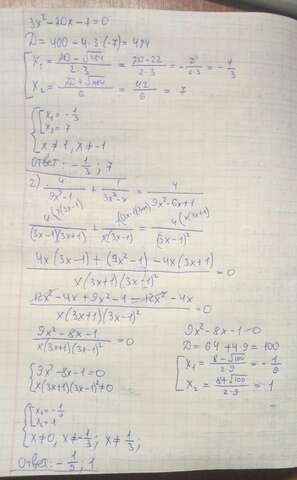 3x²-20x-7=0
D=400-4·3·(-7)=484
[x₁=(20-√484)/(2·3)=(20-22)/(2·3)=-2/(2·3)=-1/3
[x₂=(20+√484)/6=42/6=7
{[x₁=-1/3
[x₂=7
x≠1, x≠-1
Ответ: -1/3; 7
2) 4/(9x²-1)+1/(3x²-x)=4/(9x²-6x+1)
4/((3x-1)(3x+1))+1/(x(3x-1))=4/(3x-1)²
(4x(3x-1)+(9x²-1)-4x(3x+1))/(x(3x+1)(3x-1)²)=0
(12x²-4x+9x²-1-12x²-4x)/(x(3x+1)(3x-1)²)=0
(9x²-8x-1)/(x(3x+1)(3x-1)²)=0
{9x²-8x-1=0
x(3x+1)(3x-1)²≠0
9x²-8x-1=0
D=64+4·9=100
[x₁=(8-√100)/(2·9)=-1/9
[x₂=(8+√100)/(2·9)=1
{[x₁=-1/9
[x₂=1
x≠0, x≠-1/3; x≠1/3;
Ответ: -1/9, 1